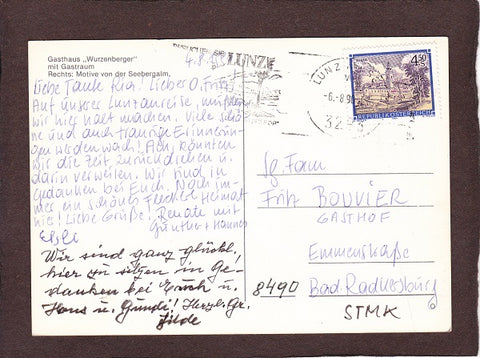 Gasthaus „Wurzenberger"
mit Gastraum
Rechts: Motive von der Seebergalm,
4.8.
LUNZ
Liebe Tante Ria! Lieber O. Fritz!
Auf unserer Lunzanreise, mußten
wir hier halt machen. Viele schö-
ne und auch traurige Erinnerun-
gen werden wach! Ach, könnten
wir die Zeit zurückdrehen u.
darin verweilen. Wir sind in
Gedanken bei Euch. Noch im-
mer ein schönes Fleckerl Heimat
hier! Liebe Grüße! Renate mit
Günther + Hannes
Wir sind ganz glückl.
hier zu sitzen in Ge-
danken bei Euch u.
Hans u. Gundi! Herzl. Gr.
Hilde
LUNZ
-6.-8.
4.50
REPUBLIK ÖSTERREICH
Fam
Fritz BOUVIER
GASTHOF
Emmenstraße
8490 Bad Radkersburg
STMK